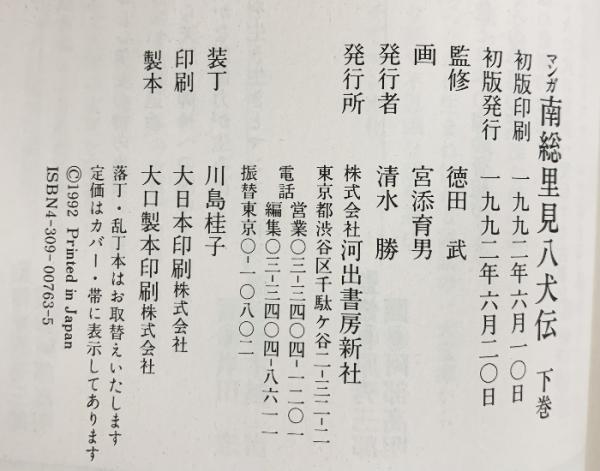 マンガ 南総里見八犬伝 下巻
初版印刷 一九九二年六月一〇日
初版発行 一九九二年六月二〇日
監修 徳田 武
画 宮添育男
発行者 清水 勝
発行所 株式会社河出書房新社
東京都渋谷区千駄ケ谷二-三二-二
電話 営業〇三-三四〇四-一二〇一
編集〇三-三四〇四-八六一一
振替東京〇-一〇八〇二
装丁 川島桂子
印刷 大日本印刷株式会社
製本 大口製本印刷株式会社
落丁・乱丁本はお取替えいたします
定価はカバー・帯に表示してあります
©1992 Printed in Japan
ISBN4-309-00763-5